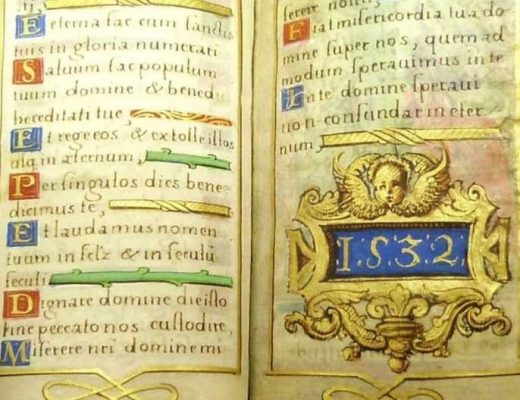 ti,
Eterna fac cum sanctis
tuis in gloria numerari
Saluum fac populum
tuum domine & bene du
hereditati tue,
Et rege eos & extolle illos
usq in aeternum,
Per singulos dies bene=
dicimus te,
Et laudamus nomen
tuum in selz & in seculu
seculi
Dignare domine die isto
sine peccato nos custodire,
Miserere nri domine mi
serere nostri
Fiat misericordia tua do
mine super nos, quem ad
modum sperauimus in te
In te domine speraui
non confundar in eter
num,
1.5.3.2,